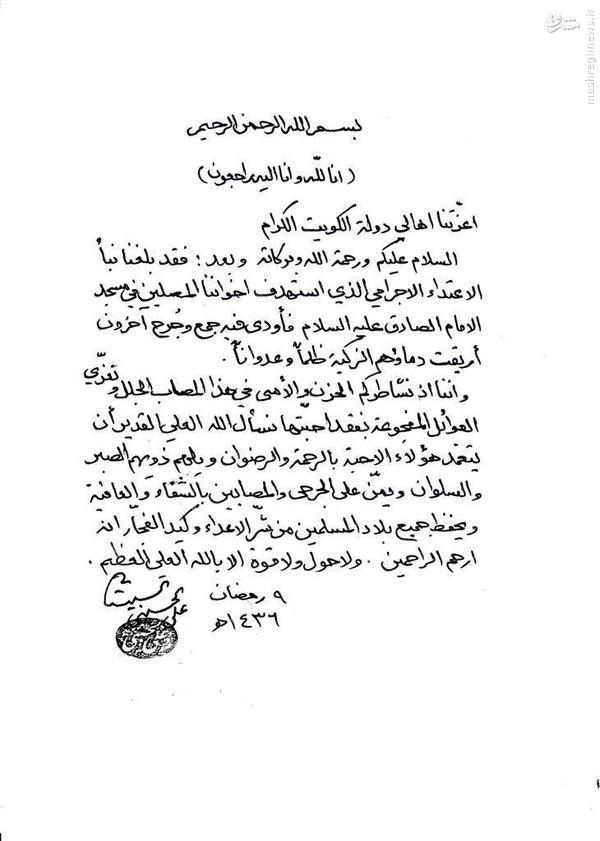 مشرق
mashreghnews.ir
بسم الله الرحمن الرحيم
(انا لله وانا اليه راجعون)
اعزّتنا اهالي دولة الكويت الكرام
السلام عليكم ورحمة الله وبركاته وبعد : فقد بلغنا نبأ
الاعتداء الاجرامي الذي استهدف اخواننا المصلين في مسجد
الامام الصادق عليه السلام فأودى فيه جمع وجُرح آخرون
أريقت دماؤهم الزكية ظلماً وعدواناً .
واننا اذ نشاطركم الحزن والأسى في هذا المصاب الجلل ونعزّي
العوائل المفجوعة بفقد احبّتها نسأل الله العلي القدير أن
يتغمد هؤلاء الاحبة بالرحمة والرضوان ويلهم ذويهم الصبر
والسلوان ويمنّ على الجرحى والمصابين بالشفاء والعافية
ويحفظ جميع بلاد المسلمين من شرّ الاعداء وكيد الفجّار انه
ارحم الراحمين . ولا حول ولا قوة الا بالله العلي العظيم .
٩ رمضان
١٤٣٦هـ
علي الحسيني السيستاني